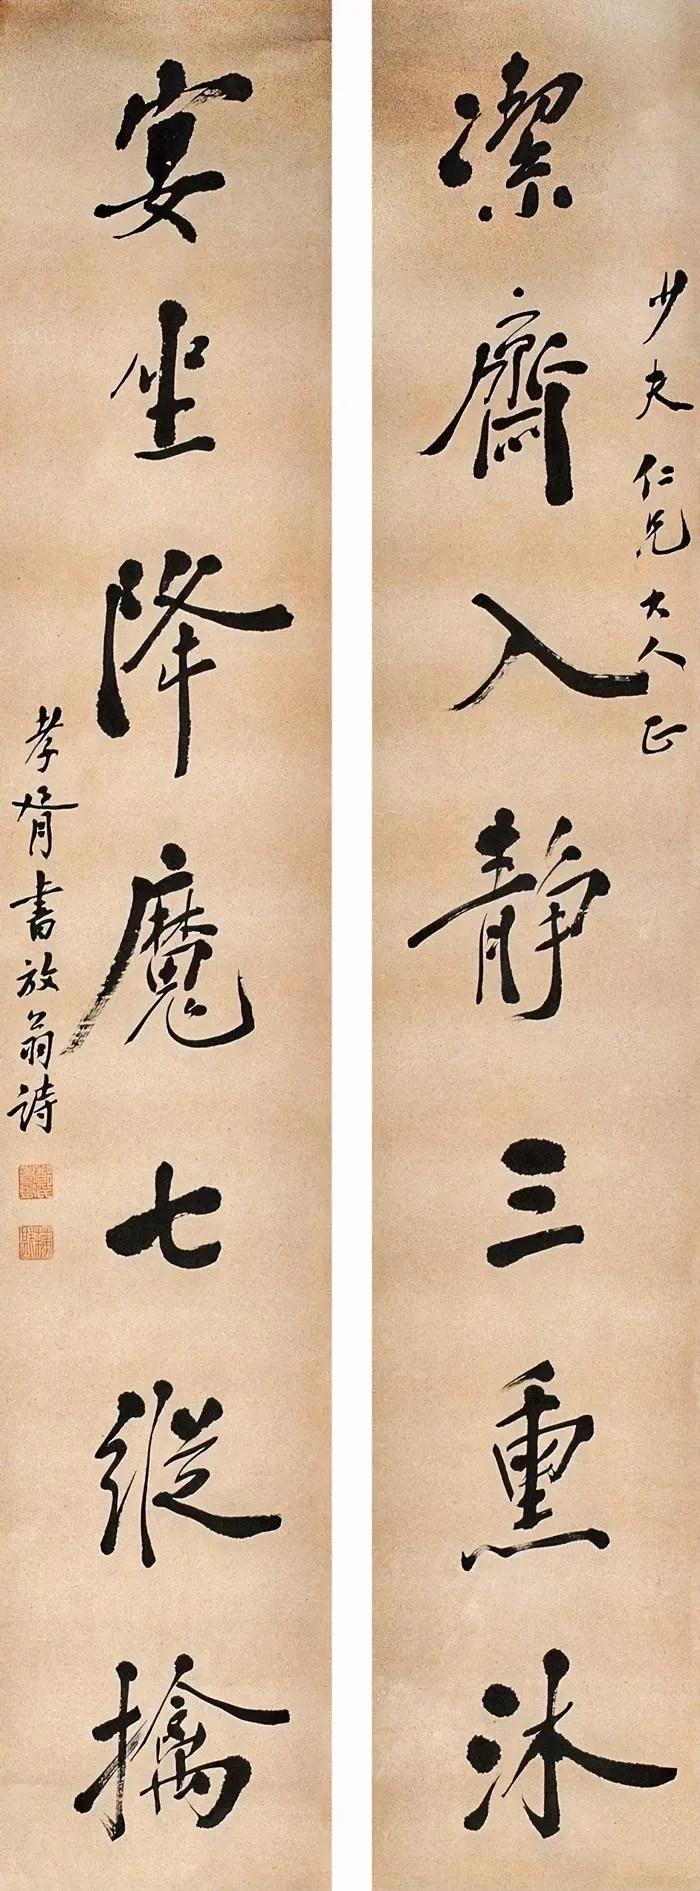 少夫仁兄大人正
潔齋入靜三熏沐
宴坐降魔七縱擒
孝胥書放翁詩